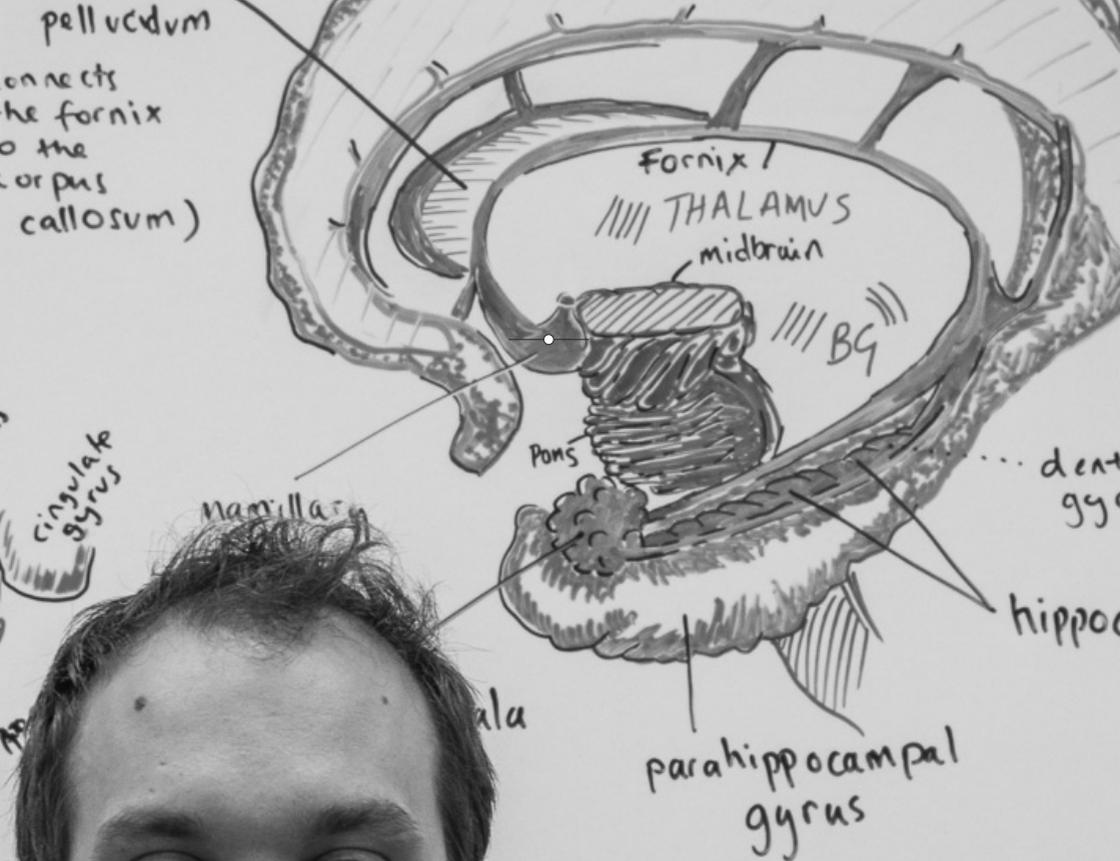 pellucidum
connects
the fornix
to the
corpus
callosum)
Fornix
THALAMUS
midbrain
BG
Pons
cingulate
gyrus
mamillary
dent
gy
hippoc
ala
parahippocampal
gyrus